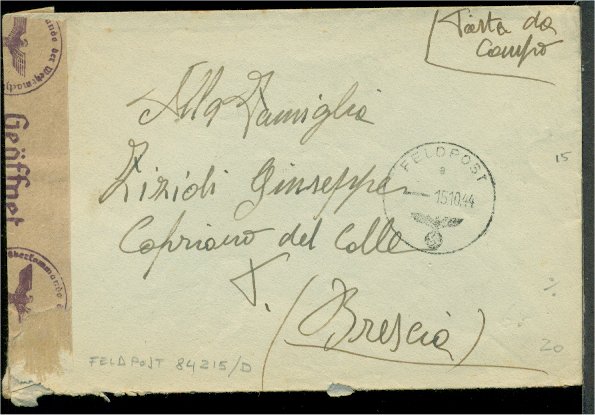 Posta da
Campo
Alla Famiglia
Zizidi Giuseppe
Capriano del Colle
(Brescia)
FELDPOST
a
15.10.44
15
Geöffnet
Oberkommando
FELDPOST 84215/D
20